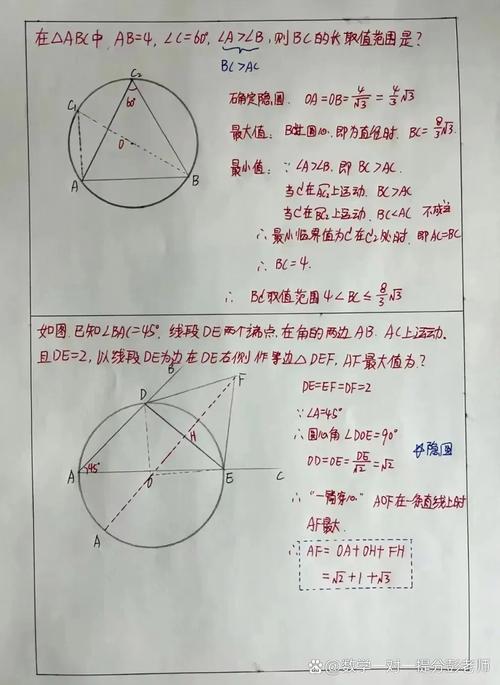 在△ABC中, AB=4, ∠C=60°, ∠A>∠B, 则BC的长取值范围是?
BC>AC
C₂
C₁
60°
O
A
B
确定隐圆. OA=OB=4/√3=4/3√3
最大值: BC过圆心, 即为直径时. BC=8/3√3.
最小值: ∵∠A>∠B. 即 BC>AC.
当C在AC₂上运动. BC>AC
当C在BC₂上运动. BC<AC 不成立
∴最小临界值为C在C₂处时. 即AC=BC
∴BC=4.
∴BC取值范围 4<BC≤8/3√3
如图. 已知∠BAC=45°. 线段DE两个端点. 在角的两边AB. AC上运动.
且DE=2, 以线段DE为边在DE右侧作等边△DEF, AF最大值为?
B
D
F
H
A
45°
O
E
C
A
DE=EF=DF=2
∵∠A=45°
∴圆心角∠DOE=90°
OD=OE=DE/√2=√2
隐圆
∴"一箭穿心" AOF在一条直线上时
AF最大.
∴AF=OA+OH+FH
=√2+1+√3
@数学一对一提分彭老师